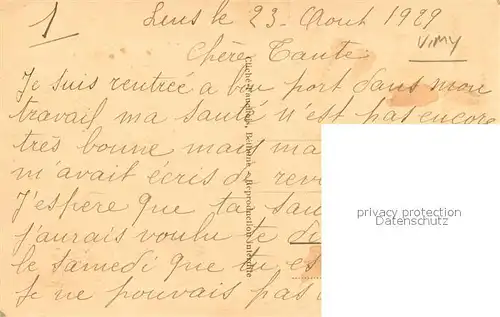 1
Lens le 23 - Aout 1929
VIMY
Chère Tante
Je suis rentrée a bon port dans mon
travail ma santé n'est pas encore
très bonne mais ma
m'avait écris de rev
J'espère que ta san
j'aurais voulu te di
le samedi que tu es
Je ne pouvais pas
Bethune. - Reproduction Interdite
privacy protection
Datenschutz